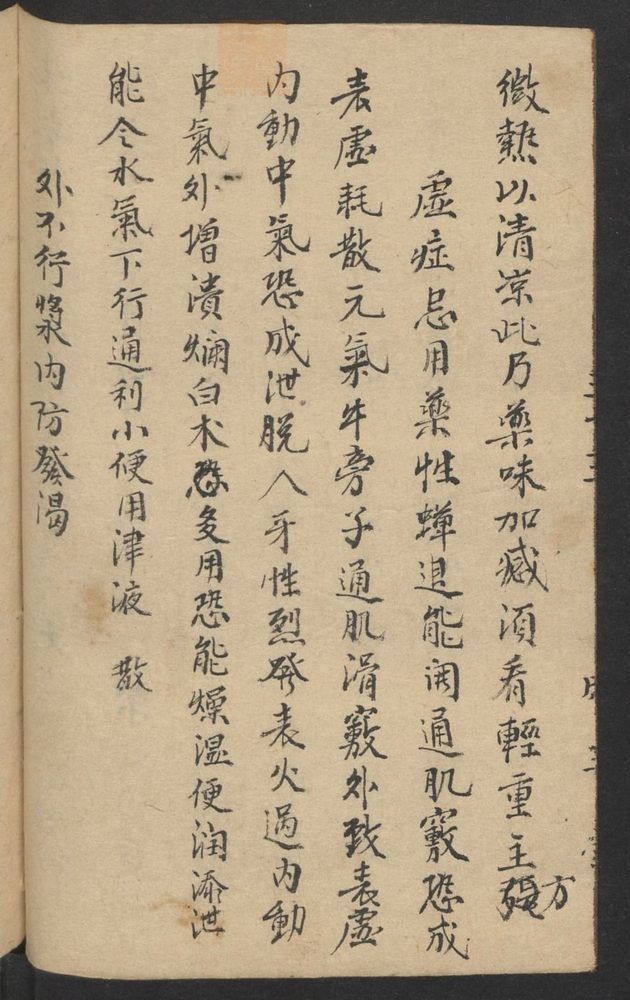 微熱以清凉此乃藥味加減須看輕重主方
虛症忌用藥性蟬退能開通肌竅恐成
表虛耗散元氣牛旁子通肌滑竅外致表虛
內動中氣恐成泄脫人牙性烈發表火過內動
中氣外增潰爛白术多用恐能燥濕便润添泄
能令水氣下行通利小便用津液 散
外不行漿內防發渴